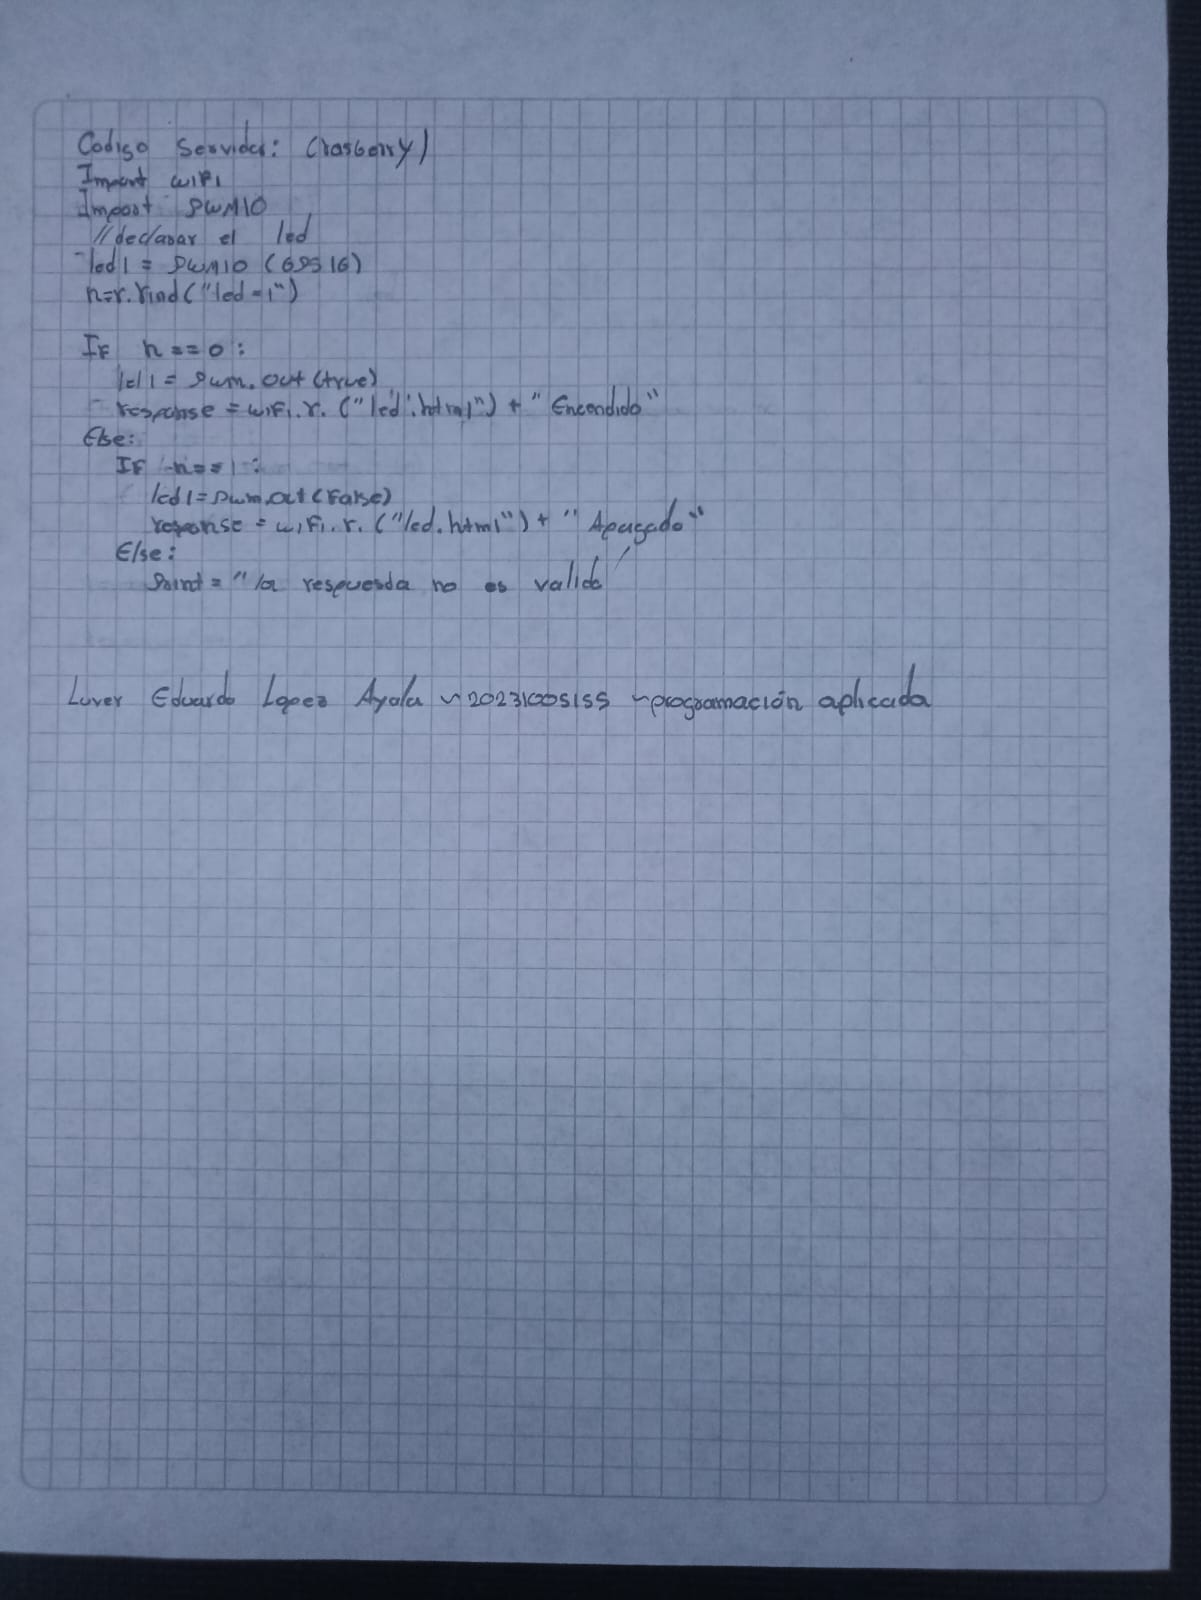 Codigo Servidor: (rasberry)
Import wiFi
Import PWMIO
//declarar el led
led1 = PWMIO (GPS16)
n=r.Find("led=1")
IF n==0:
led1 = Pwm.out(true)
response = wiFi.r.("led.html") + "Encendido"
Else:
IF n==1:
led1=Pwm.out(False)
response = wiFi.r.("led.html") + "Apagado"
Else:
Print = "la respuesda no es valida"
Luver Eduardo Lopez Ayala ~20231005155 ~programación aplicada